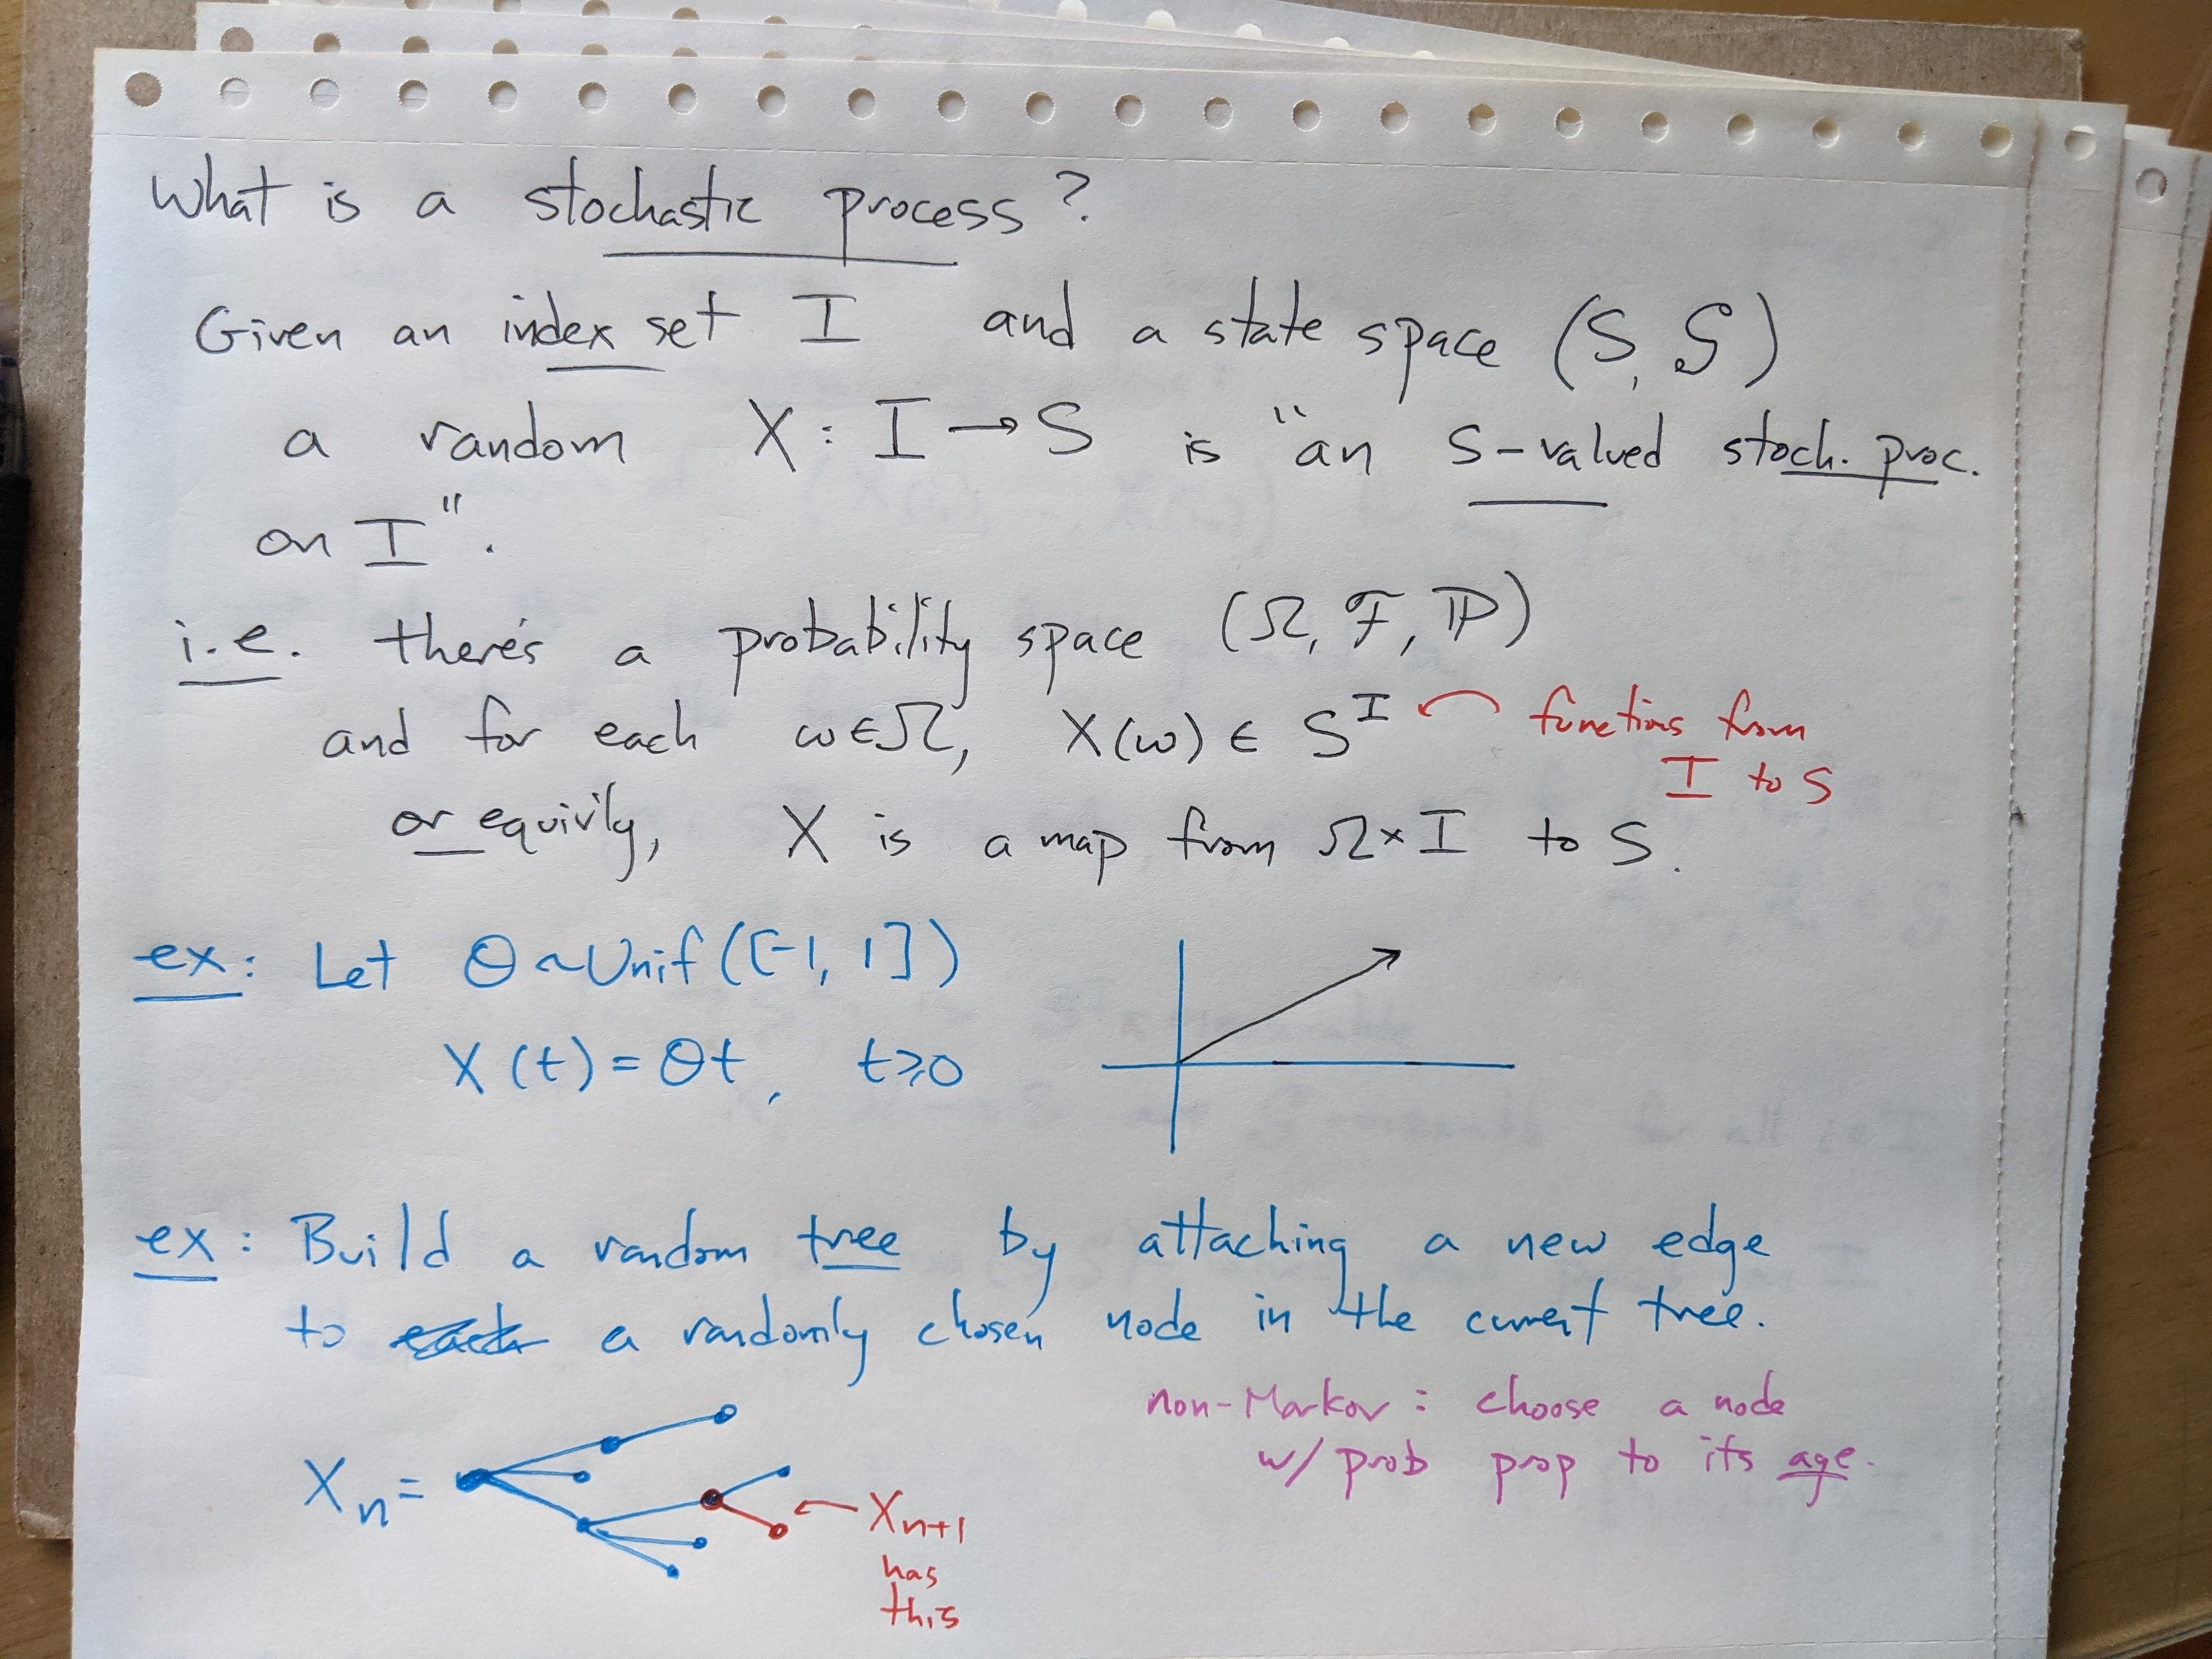 What is a stochastic process?
Given an index set I and a state space (S, 𝒮)
a random X : I → S is "an S-valued stoch. proc.
on I".
i.e. there's a probability space (Ω, ℱ, ℙ)
and for each ω ∈ Ω, X(ω) ∈ S^I ← functions from
I to S
or equivily, X is a map from Ω × I to S.
ex: Let Θ ~ Unif([-1, 1])
X(t) = Θt, t ≥ 0
ex: Build a random tree by attaching a new edge
to each a randomly chosen node in the current tree.
non-Markov: choose a node
w/ prob prop to its age.
X_n =
← X_{n+1}
has
this